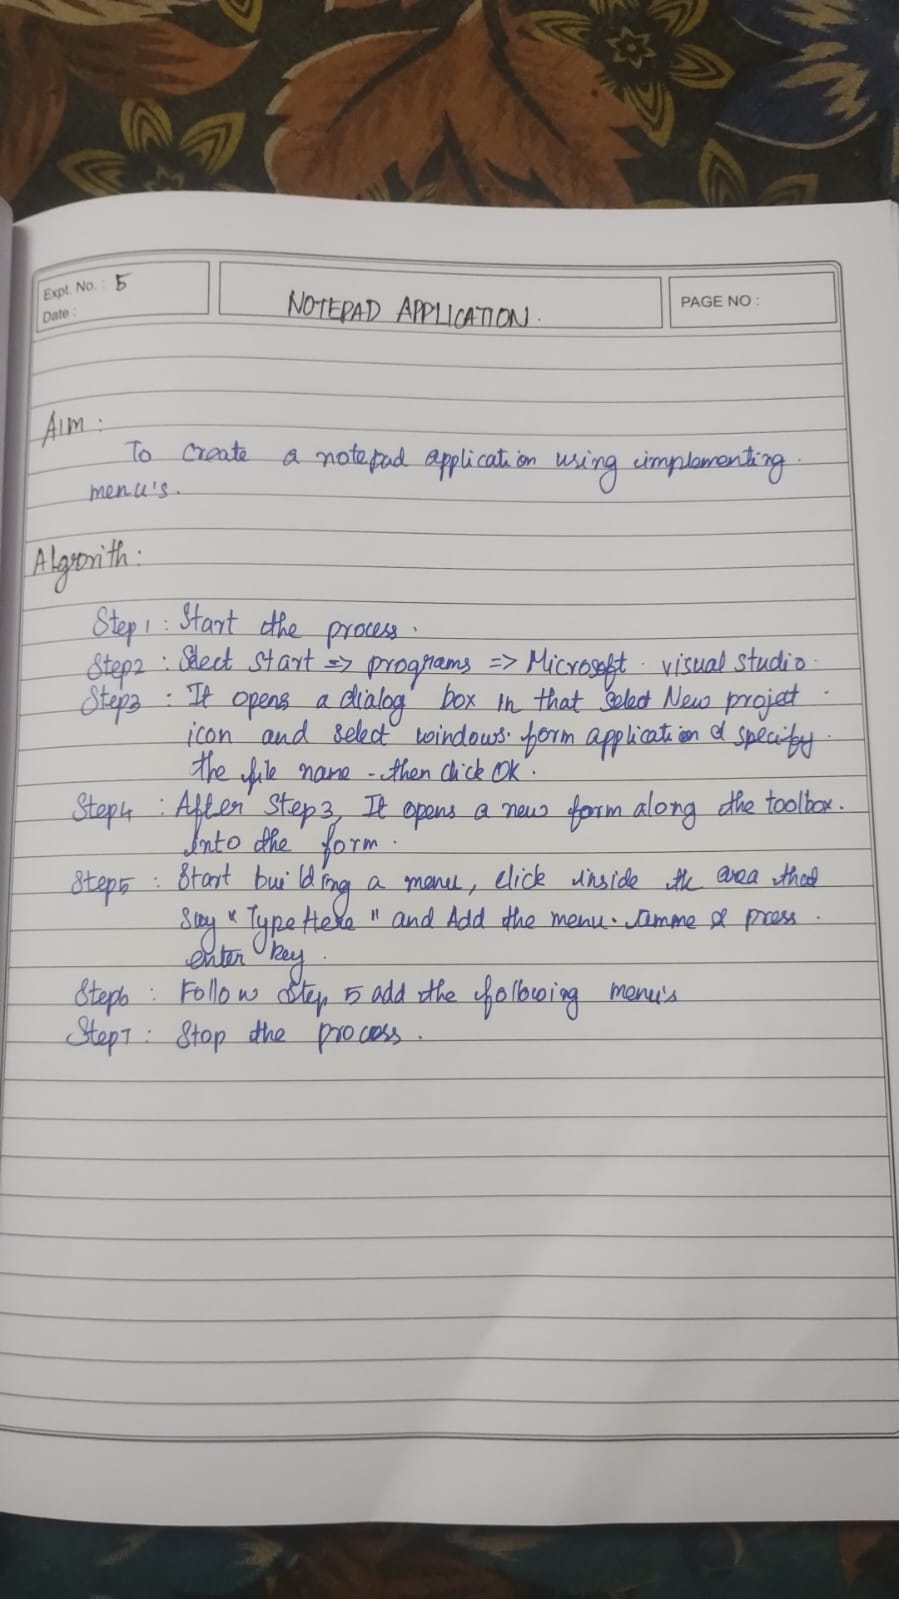 Expt. No. : 5
Date :
NOTEPAD APPLICATION.
PAGE NO :
Aim :
To create a notepad application using implementing.
menu's.
Algorith:
Step1 : Start the process.
Step2 : Select start => programs => Microsoft. visual studio.
Step3 : It opens a dialog box in that select New project.
icon and select windows. form application & specify.
the file name - then click OK.
Step4 : After Step3, It opens a new form along the toolbox.
Into the form.
Step5 : Start building a menu, click inside the area that
Say "Type Here" and Add the menu. & press.
enter key.
Step6 : Follow Step 5 add the following menu's
Step7 : Stop the process.